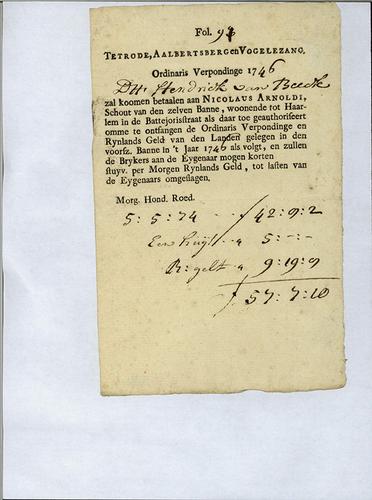 Fol. 93
TETRODE, AALBERTSBERG en VOGELEZANG.
Ordinaris Verpondinge 1746
Dhr. Hendrick van Beeck
zal koomen betaalen aan NICOLAUS ARNOLDI,
Schout van den zelven Banne, woonende tot Haar-
lem in de Battejorisstraat als daar toe geauthoriseert
omme te ontfangen de Ordinaris Verpondinge en
Rynlands Geld van den Landen gelegen in den
voorsz. Banne in 't Jaar 1746 als volgt, en zullen
de Brykers aan de Eygenaar mogen korten
stuyv. per Morgen Rynlands Geld, tot lasten van
de Eygenaars omgeslagen.
Morg. Hond. Roed.
5 : 5 : 74 - - ƒ 42 : 9 : 2
Een huijs " 5 : - : -
R: gelt " 9 : 19 : 0
ƒ 57 : 7 : 10